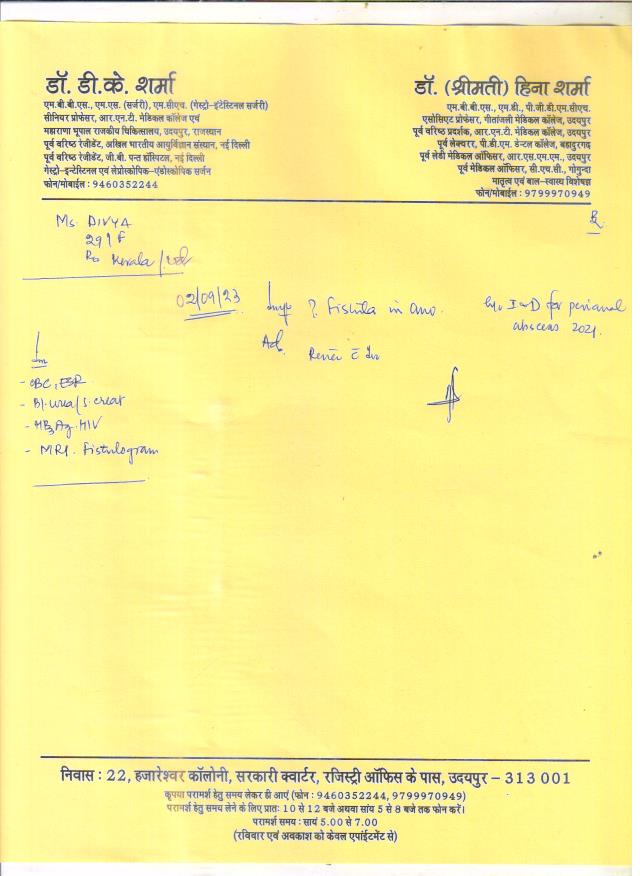 डॉ. डी.के. शर्मा
एम.बी.बी.एस., एम.एस. (सर्जरी), एम.सीएच. (गेस्ट्रो-इंटेस्टिनल सर्जरी)
सीनियर प्रोफेसर, आर.एन.टी. मेडिकल कॉलेज एवं
महाराणा भूपाल राजकीय चिकित्सालय, उदयपुर, राजस्थान
पूर्व वरिष्ठ रेजीडेंट, अखिल भारतीय आयुर्विज्ञान संस्थान, नई दिल्ली
पूर्व वरिष्ठ रेजीडेंट, जी.बी. पन्त हॉस्पिटल, नई दिल्ली
गेस्ट्रो-इन्टेस्टिनल एवं लेप्रोस्कोपिक-एंडोस्कोपिक सर्जन
फोन/मोबाईल : 9460352244
डॉ. (श्रीमती) हिना शर्मा
एम.बी.बी.एस., एम.डी., पी.जी.डी.एम.सीएच.
एसोसिएट प्रोफेसर, गीतांजली मेडिकल कॉलेज, उदयपुर
पूर्व वरिष्ठ प्रदर्शक, आर.एन.टी. मेडिकल कॉलेज, उदयपुर
पूर्व लेक्चरर, पी.डी.एम. डेन्टल कॉलेज, बहादुरगढ़
पूर्व लेडी मेडिकल ऑफिसर, आर.एस.एम.एम., उदयपुर
पूर्व मेडिकल ऑफिसर, सी.एच.सी., गोगुन्दा
मातृत्व एवं बाल-स्वास्थ्य विशेषज्ञ
फोन/मोबाईल : 9799970949
Ms. DIVYA
29 F
R/o Kerala /
02/09/23
Imp ? Fistula in ano.
h/o I & D for perianal
abscess 2021.
Adv.
Review c̄ Inv
Inv
- CBC, ESR
- Bl. urea / S. creat
- HBsAg. HIV
- MRI. Fistulogram
निवास : 22, हजारेश्वर कॉलोनी, सरकारी क्वार्टर, रजिस्ट्री ऑफिस के पास, उदयपुर – 313 001
कृपया परामर्श हेतु समय लेकर ही आएं (फोन : 9460352244, 9799970949)
परामर्श हेतु समय लेने के लिए प्रातः 10 से 12 बजे अथवा सांय 5 से 8 बजे तक फोन करें।
परामर्श समय : सायं 5.00 से 7.00
(रविवार एवं अवकाश को केवल एपांईटमेंट से)